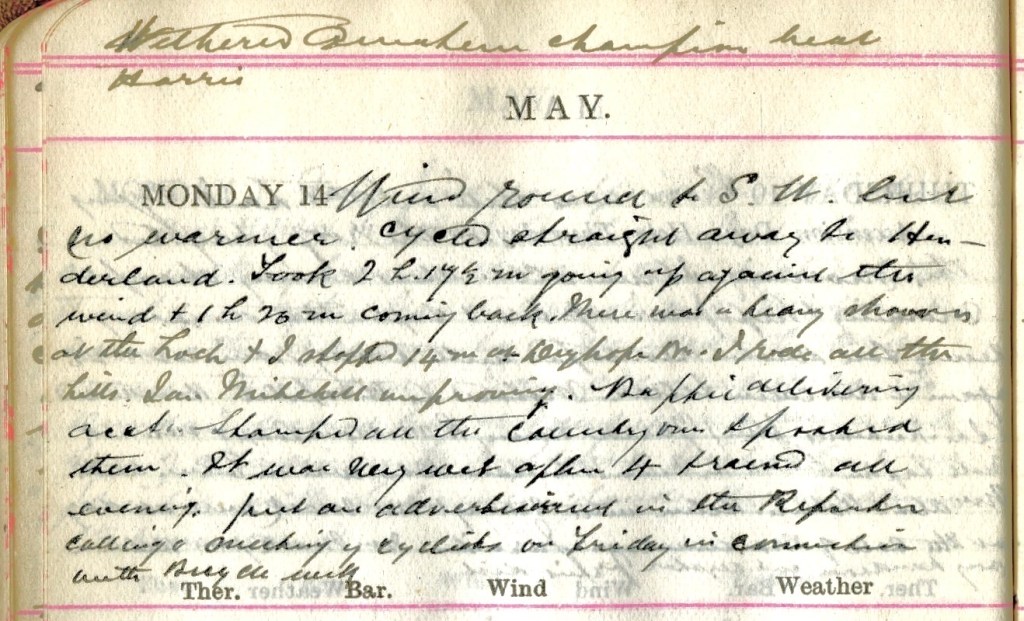 Wethered champion beat
Harris
MAY.
MONDAY 14 Wind round to S.W. but
no warmer. Cycled straight away to Hen-
derland. Took 2 h. 17½ m going up against the
wind & 1 h 20 m coming back. There was a heavy shower
at the Loch & I stopped 14 m at Br. I rode all the
hills. Ian Mitchell improving. delivering
accts. Stamped all the country ones & posted
them. It was very wet after 4 & rained all
evening. Put an advertisement in the Reporter
calling a meeting of cyclists on Friday in connection
with Bicycle
Ther. Bar. Wind Weather